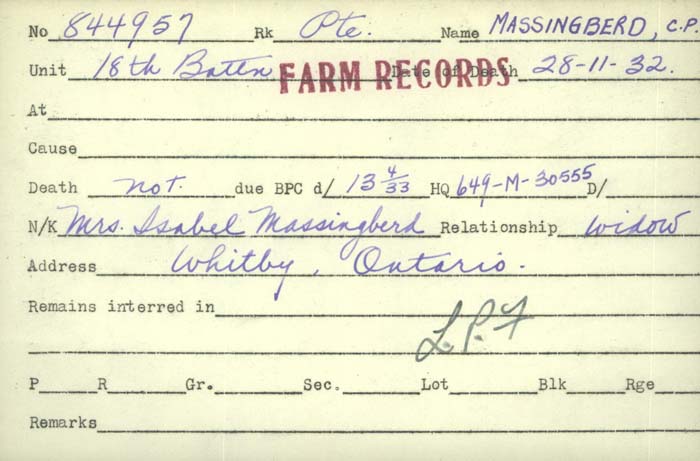 No 844957 Rk Pte. Name MASSINGBERD, C.P.
Unit 18th Batln FARM RECORDS Date of Death 28-11-32.
At
Cause
Death not. due BPC d/ 13 4/33 HQ 649-M-30555 D/
N/K Mrs. Isabel Massingberd Relationship widow
Address Whitby, Ontario.
Remains interred in
L.P.F
P R Gr. Sec. Lot Blk Rge
Remarks